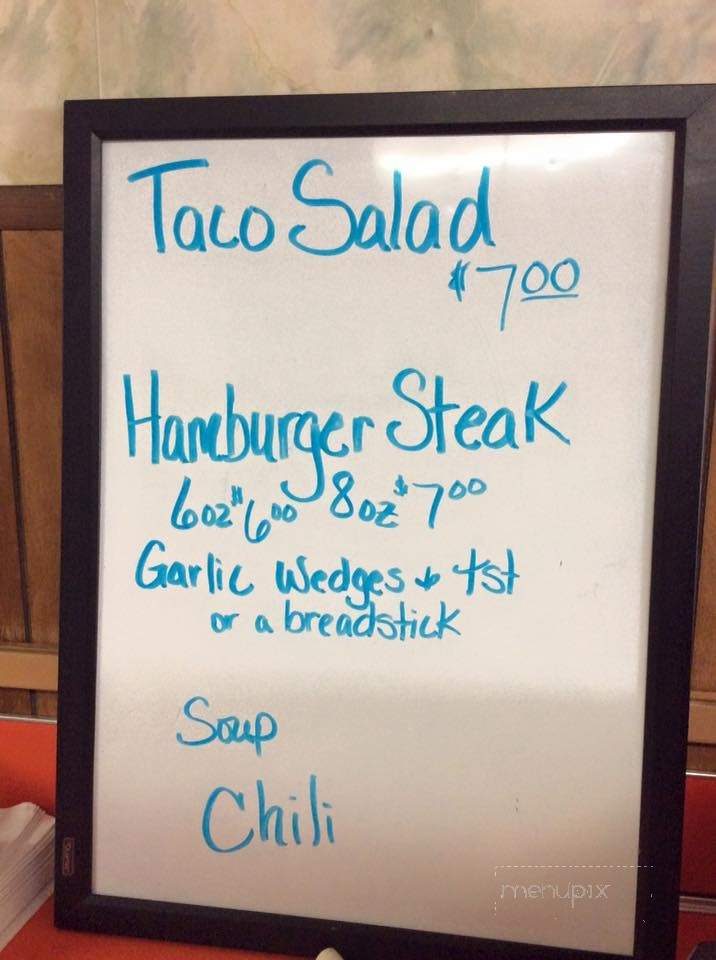 Taco Salad
$7.00
Hamburger Steak
6oz $6.00 8oz $7.00
Garlic Wedges & tst
or a breadstick
Soup
Chili
menupix